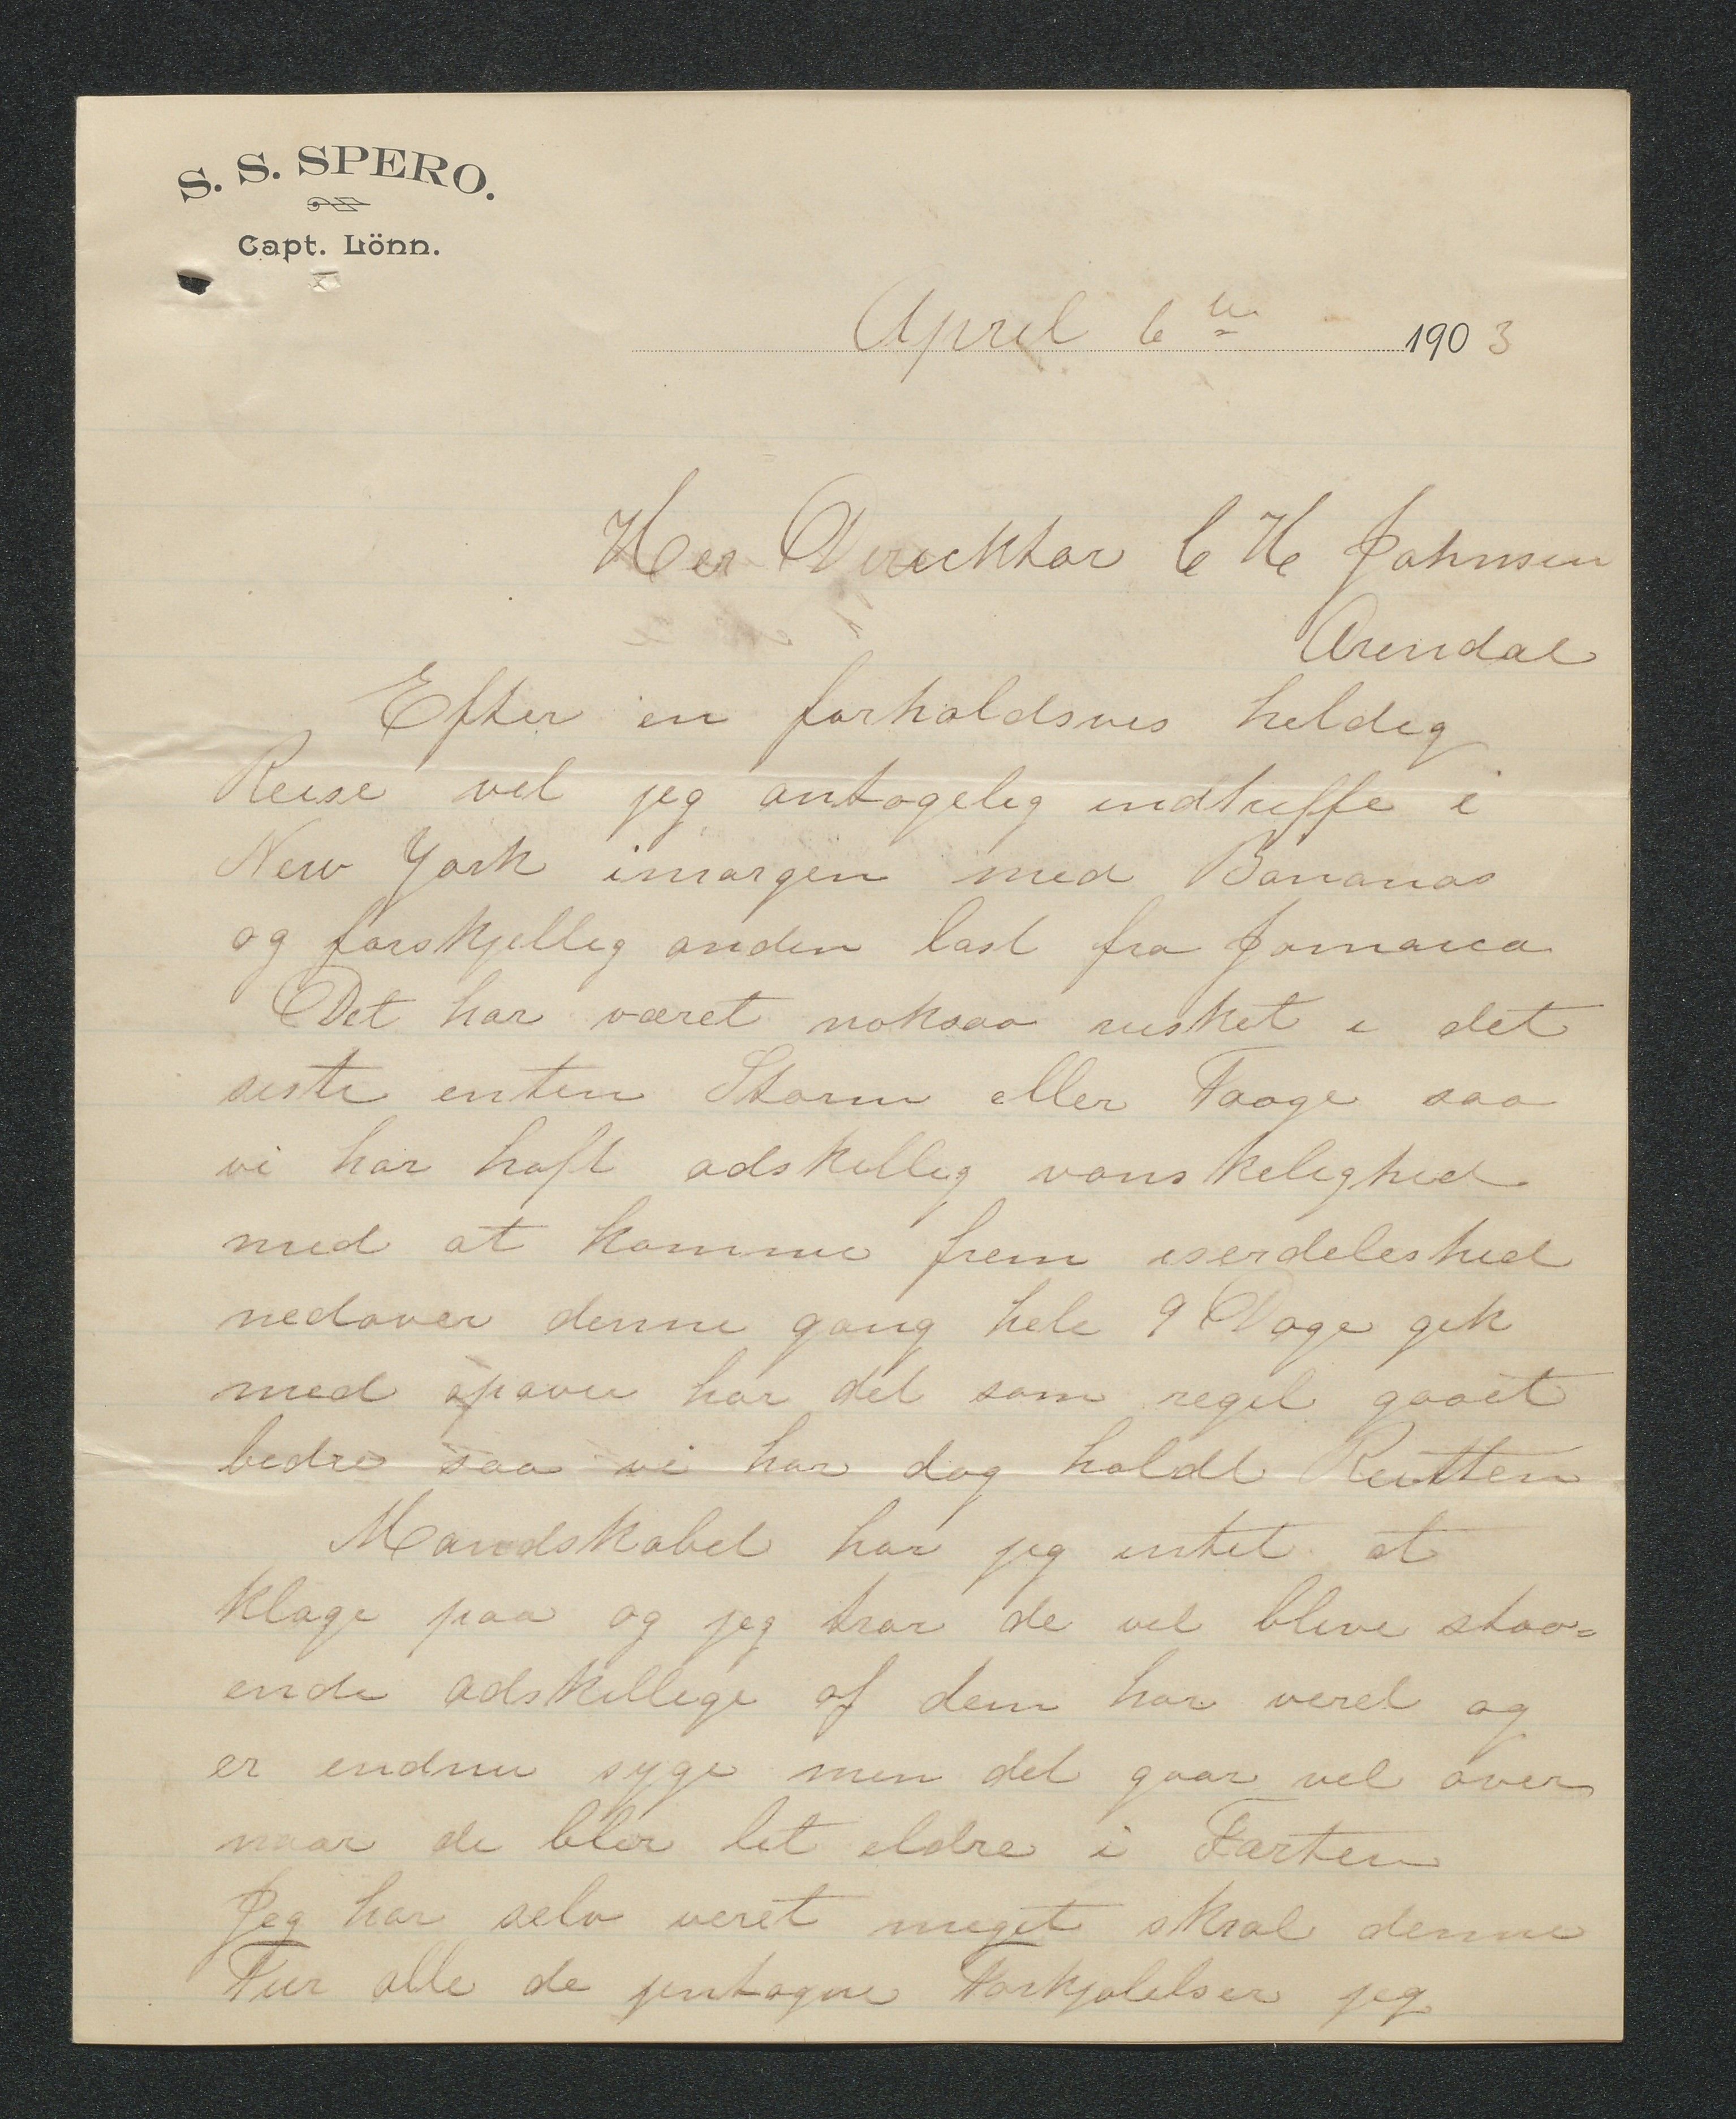 S. S. SPERO.
Capt. Lönn.
April 6te 1903
Her Direcktør C H Johnsen
Arendal
Efter en forholdsvis heldig
Reise vil jeg antagelig indtreffe i
New York imorgen med Bananas
og forskjellig anden last fra Jamaica
Det har været noksaa rusket i det
siste enten Storm eller Taage saa
vi har haft adskillig vanskelighed
med at komme frem iserdeleshed
nedover denne gang hele 9 Dage gik
med opover har det som regel gaaet
bedre saa vi har dog holdt Rutten
Mandskabet har jeg intet at
klage paa og jeg tror de vil blive staa=
ende adskillige af dem har veret og
er endnu syge men det gaar vel over
naar de blir lit eldre i Farten
Jeg har selv veret meget skral denne
Tur alle de jentagne Forkjølelser jeg